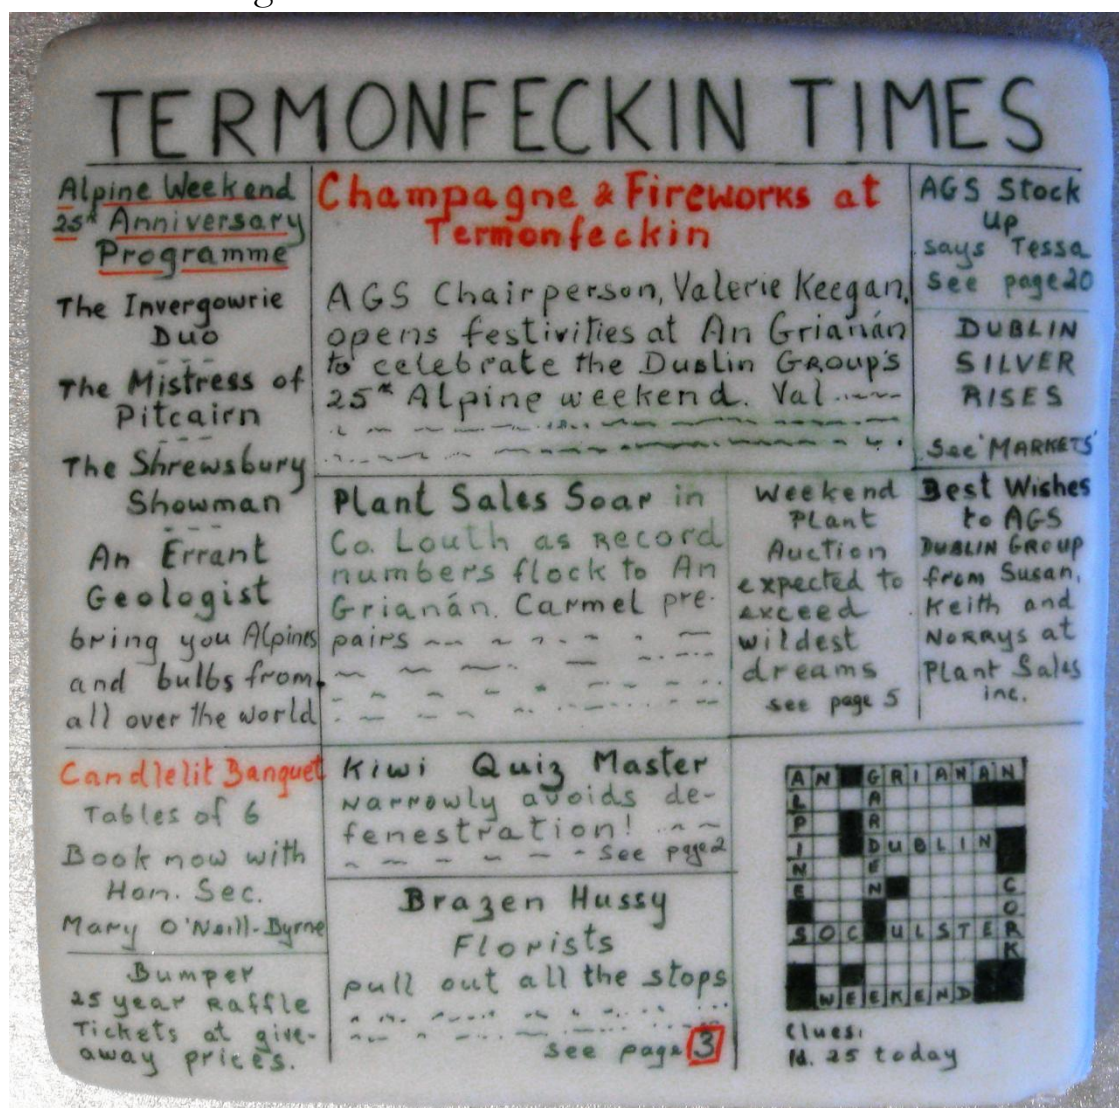 TERMONFECKIN TIMES
Alpine Weekend
25th Anniversary
Programme
The Invergowrie
Duo
The Mistress of
Pitcairn
The Shrewsbury
Showman
An Errant
Geologist
bring you Alpines
and bulbs from
all over the world
Candlelit Banquet
Tables of 6
Book now with
Hon. Sec.
Mary O'Neill-Byrne
Bumper
25 year Raffle
Tickets at give-
away prices.
Champagne & Fireworks at
Termonfeckin
AGS Chairperson, Valerie Keegan,
opens festivities at An Grianán
to celebrate the Dublin Group's
25th Alpine weekend. Val
Plant Sales Soar in
Co. Louth as record
numbers flock to An
Grianán. Carmel pre-
pairs
Kiwi Quiz Master
narrowly avoids de-
fenestration!
see page 2
Brazen Hussy
Florists
pull out all the stops
see page 3
Weekend
Plant
Auction
expected to
exceed
wildest
dreams
see page 5
AGS Stock
up
says Tessa
see page 20
DUBLIN
SILVER
RISES
See 'MARKETS'
Best Wishes
to AGS
DUBLIN GROUP
from Susan,
Keith and
Norrys at
Plant Sales
inc.
AN GRIANAN
ALPINES
GARDEN
DUBLIN
CORK
SOC ULSTER
WEEKEND
Clues:
1d. 25 today